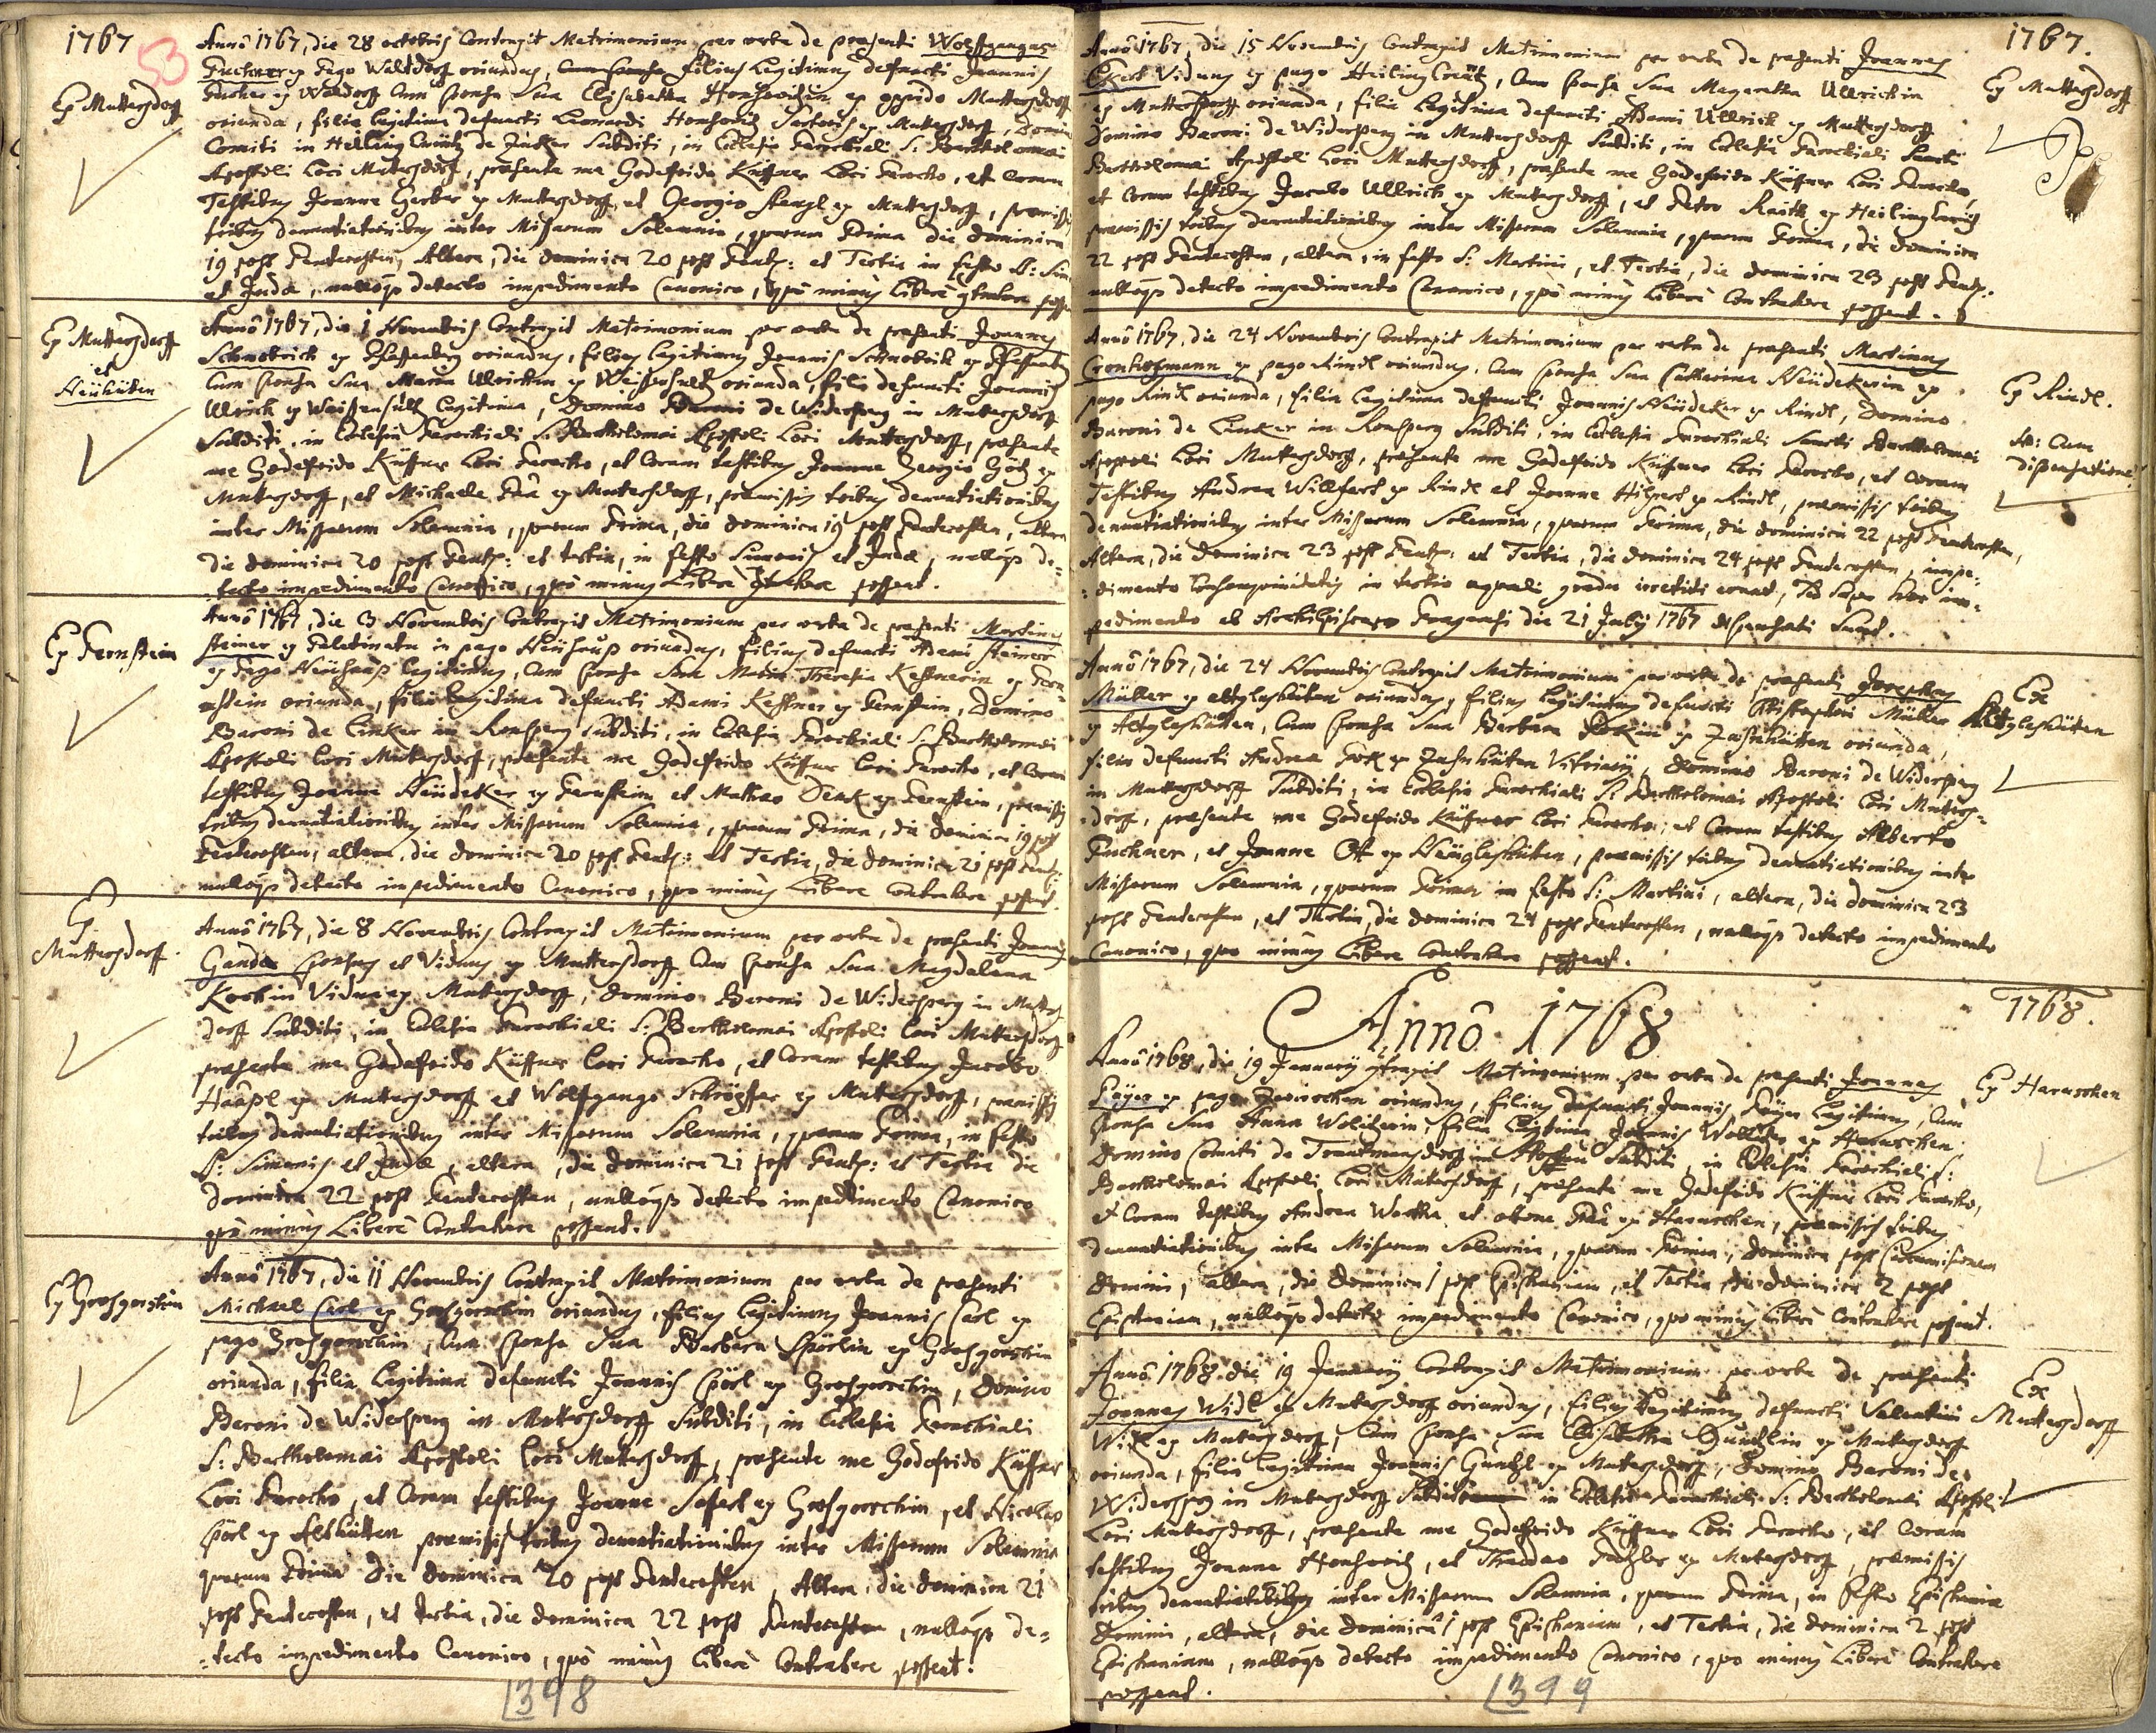 1767
53
Ex Muttersdorff
Anno 1767, die 28 octobris Contraxit Matrimonium per verba de praesenti Wolffgangus
Fuchner ex Pago Waltdorff oriundus, filius Legitimus defuncti Joannis
Fucher ex Waldorff Cum sponsa Sua Elisabetha ex oppido Muttersdorff
oriunda, filia legitima defuncti Leonardi ex Muttersdorff, Domino
Comiti in Heiling Creütz de Subditi, in Eclesia Parochiali S: Bartholomaei
Apostoli Loci Mutersdorff, praesente me Godefrido Küffner Loci Parocho, et Coram
Testibus Joanne Gerber ex Mutersdorff, et Georgio Stengl ex Muttersdorff, praemissis
tribus denuntiationibus inter Missarum Solemnia, quarum Prima die dominica
19 post Pentecosten, Altera, die dominica 20 post Pent: et Tertia in festo S: Sim:
et Judae, nulloqs detecto impedimento Canonico, quo minus Liberè contrahere possent
Ex Muttersdorff
et
Neühüten
Anno 1767, die 1 Novembris Contraxit Matrimonium per verba de praesenti Joannes
Schwobrick ex oriundus, filius legitimus Joannis Schwobrik ex
Cum sponsa Sua Maria Ulrickin ex Weissensultz oriunda, filia defuncti Joannis
Ulrick ex Waissensultz Legitima, Domino Baroni de Widersperg in Mutersdorff
Subditi, in Eclesia Parochiali S: Bartholomaei Apostoli Loci Muttersdorff, praesente
me Godefrido Küffner Loci Parocho, et Coram testibus Joanne Georgio Götz ex
Mutersdorff, et Michaele ex Mutersdorff, praemissis tribus denuntiationibus
inter Missarum Solemnia, quarum Prima, die dominica 19 post Pentecosten, altera
die dominica 20 post Pent: et tertia, in festo Simonis et Judae, nulloqs de-
tecto impedimento Canonico, quo minus Liberè contrahere possent.
Ex Fernstein
Anno 1767, die 3 Novembris Contraxit Matrimonium per verba de praesenti Martinus
Steiner ex Palatinatu in pago Neühaus oriundus, filius defuncti Adami Steiner
ex Pago Neühaus legitimus, Cum sponsa Sua Maria Theresia Keffnerin ex Fern
stein oriunda, filia legitima defuncti Adami Keffner ex Fernstein, Domino
Baroni de Linker in Ronsperg Subditi, in Eclesia Parochiali S: Bartholomaei
Apostoli Loci Mutersdorff, praesente me Godefrido Küffner Loci Parocho, et Coram
testibus Joanne Neudeker ex Fernstein, et Matheo Denk ex Fernstein, praemissis
tribus denuntiationibus inter Missarum Solemnia, quarum Prima, die dominica 19 post
Pentecosten, altera, die dominica 20 post Pent: et Tertia, die dominica 21 post Pent:
nulloqs detecto impedimento Canonico, quo minus Liberè Contrahere possent.
Ex
Muttersdorff.
Anno 1767, die 8 Novembris Contraxit Matrimonium per verba de praesenti Joannes
Gander sponsus et Viduus ex Muttersdorff Cum sponsa Sua Magdalena
Kockin Vidua ex Mutersdorff, Domino Baroni de Widersperg in Mutters
dorff Subditi, in Eclesia Parochiali S: Bartholomaei Apostoli Loci Mutersdorff
praesente me Godefrido Küffner Loci Parocho, et Coram testibus Jacobo
Haapl ex Muttersdorff et Wolfgango ex Mutersdorff, praemissis
tribus denuntiationibus inter Missarum Solemnia, quarum Prima, in festo
S: Simonis et Judae, altera, die dominica 21 post Pent: et Tertia die
dominica 22 post Pentecosten, nulloqs detecto impedimento Canonico
quo minus Liberè Contrahere possent.
Ex Grosgorschin
Anno 1767, die 11 Novembris Contraxit Matrimonium per verba de praesenti
Michael Carl ex Grosgorschin oriundus, filius legitimus Joannis Carl ex
pago Grosgorschin, Cum sponsa Sua Barbara Spörlin ex Grosgorschin
oriunda, filia Legitima defuncti Joannis Spörl ex Grosgorschin, Domino
Baroni de Widersperg in Mutersdorff Subditi, in Eclesia Parochiali
S: Bartholomaei Apostoli Loci Mutersdorff, praesente me Godefrido Küffner
Loci Parocho, et Coram testibus Joanne ex Grosgorschin, et Nicolao
Spörl ex Althütten praemissis tribus denuntiationibus inter Missarum Solemnia
quarum Prima die dominica 20 post Pentecosten, Altera, die dominica 21
post Pentecosten, et Tertia, die dominica 22 post Pentecosten, nulloqs de-
tecto impedimento Canonico, quo minus Liberè Contrahere possent.
1398
1767.
Ex Muttersdorff
Anno 1767, die 15 Novembris Contraxit Matrimonium per verba de praesenti Joannes
Ekert Viduus ex pago Heiling Creütz, Cum sponsa Sua Margaretha Ullrickin
ex Muttersdorff oriunda, filia legitima defuncti Adami Ullrick ex Muttersdorff
Domino Baroni de Widersperg in Muttersdorff Subditi, in Eclesia Parochiali Sancti
Bartholomaei Apostoli Loci Muttersdorff, praesente me Godefrido Küffner Loci Parocho,
et Coram testibus Jacobo Ullrick ex Muttersdorff, et Petro Raith ex Heiling Creütz
praemissis tribus denuntiationibus inter Missarum Solemnia, quarum Prima, die dominica
22 post Pentecosten, altera, in festo S: Martini, et Tertia, die dominica 23 post Pent:
nulloqs detecto impedimento Canonico, quo minus Liberè Contrahere possent.
Ex Rindl.
NB: Cum
dispensatione
Anno 1767, die 24 Novembris Contraxit Matrimonium per verba de praesenti Martinus
Cronhofmann ex pago Rindl oriundus, Cum sponsa Sua Catharina Neüdekerin ex
pago Rindl oriunda, filia legitima deffuncti Joannis Neüdeker ex Rindl, Domino
Baroni de Linker in Ronsperg Subditi, in Eclesia Parochiali Sancti Bartholomaei
Apostoli Loci Muttersdorff, praesente me Godefrido Küffner Loci Parocho, et Coram
Testibus Andrea Willfert ex Rindl et Joanne Hilpert ex Rindl, praemissis tribus
denuntiationibus inter Missarum Solemnia, quarum Prima, die dominica 22 post Pentecosten,
Altera, die dominica 23 post Pent: et Tertia, die dominica 24 post Pentecosten, impe-
dimento Consanguinitatis in tertio aequali gradu irretiti erant, Sed super hoc im-
pedimento ab Archiepiscopo Pragensi die 21 July 1767 dispensati sunt.
Ex
Altglashüten
Anno 1767, die 24 Novembris Contraxit Matrimonium per verba de praesenti Josephus
Müller ex altglashüten oriundus, filius legitimus defuncti Christophori Müller
ex Altglashütten, Cum sponsa Sua Barbara ex oriunda,
filia defuncti Andreae ex Vitriarij, Domino Baroni de Widersperg
in Muttersdorff Subditi, in Eclesia Parochiali S: Bartholomaei Apostoli Loci Muters-
dorff, praesente me Godefrido Küffner Loci Parocho, et Coram testibus Alberto
Fuchner, et Joanne Ott ex Neüglashüten, praemissis tribus denuntiationibus inter
Missarum Solemnia, quarum Prima in festo S: Martini, altera, die dominica 23
post Pentecosten, et Tertia, die dominica 24 post Pentecosten, nulloqs detecto impedimento
Canonico, quo minus Libere Contrahere possent.
Anno 1768
1768.
Ex Haruschen
Anno 1768, die 19 January contraxit Matrimonium per verba de praesenti Joannes
Päyer ex pago oriundus, filius defuncti Joannis Päyer legitimus, Cum
sponsa Sua Anna filia legitima Joannis ex Haruschen,
Domino Comiti de Trautmansdorff in Subditi, in Eclesia Parochiali S:
Bartholomaei Apostoli Loci Mutersdorff, praesente me Godefrido Küffner Loci Parocho,
et Coram testibus Andrea et ex Haruschen, praemissis tribus
denuntiationibus inter Missarum Solemnia, quarum Prima, dominica post Circumcisionem
Domini, altera, die dominica 1 post Epiphaniam, et Tertia, die dominica 2 post
Epiphaniam, nulloqs detecto impedimento Canonico, quo minus Liberè Contrahere possent.
Ex
Muttersdorff
Anno 1768 die 19 January Contraxit Matrimonium per verba de praesenti
Joannes Widl ex Mutersdorff oriundus, filius legitimus defuncti Valentini
Widl ex Mutersdorff, Cum sponsa Sua Elisabetha Gunzlin ex Mutersdorff
oriunda, filia legitima Joannis Gunzl ex Mutersdorff, Domino Baroni de
Widersperg in Mutersdorff Subditi in Eclesia Parochiali S: Bartholomaei Apostoli
Loci Mutersdorff, praesente me Godefrido Küffner Loci Parocho, et Coram
testibus Joanne et Thadaeo ex Mutersdorff, praemissis
tribus denuntiationibus inter Missarum Solemnia, quarum Prima, in festo Epiphaniae
Domini, altera, die dominica 1 post Epiphaniam, et Tertia, die dominica 2 post
Epiphaniam, nulloqs detecto impedimento Canonico, quo minus Liberè Contrahere
possent.
1399